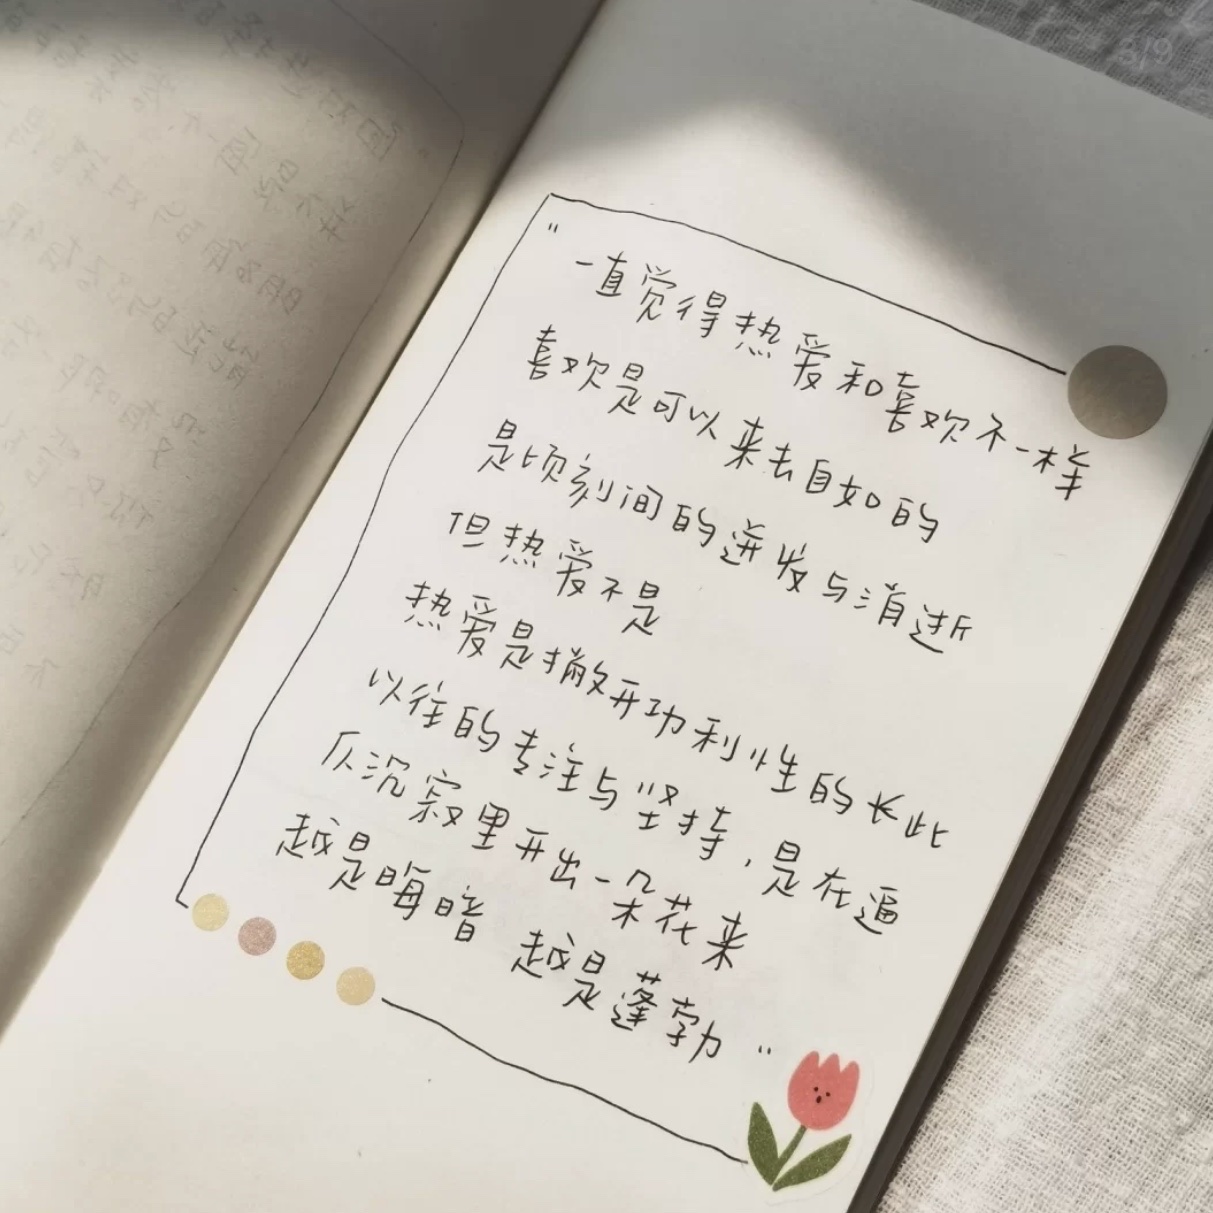 5/9
"
一直觉得热爱和喜欢不一样
喜欢是可以来去自如的
是顷刻间的迸发与消逝
但热爱不是
热爱是撇开功利性的长此
以往的专注与坚持，是在逼
仄沉寂里开出一朵花来
越是晦暗 越是蓬勃 "